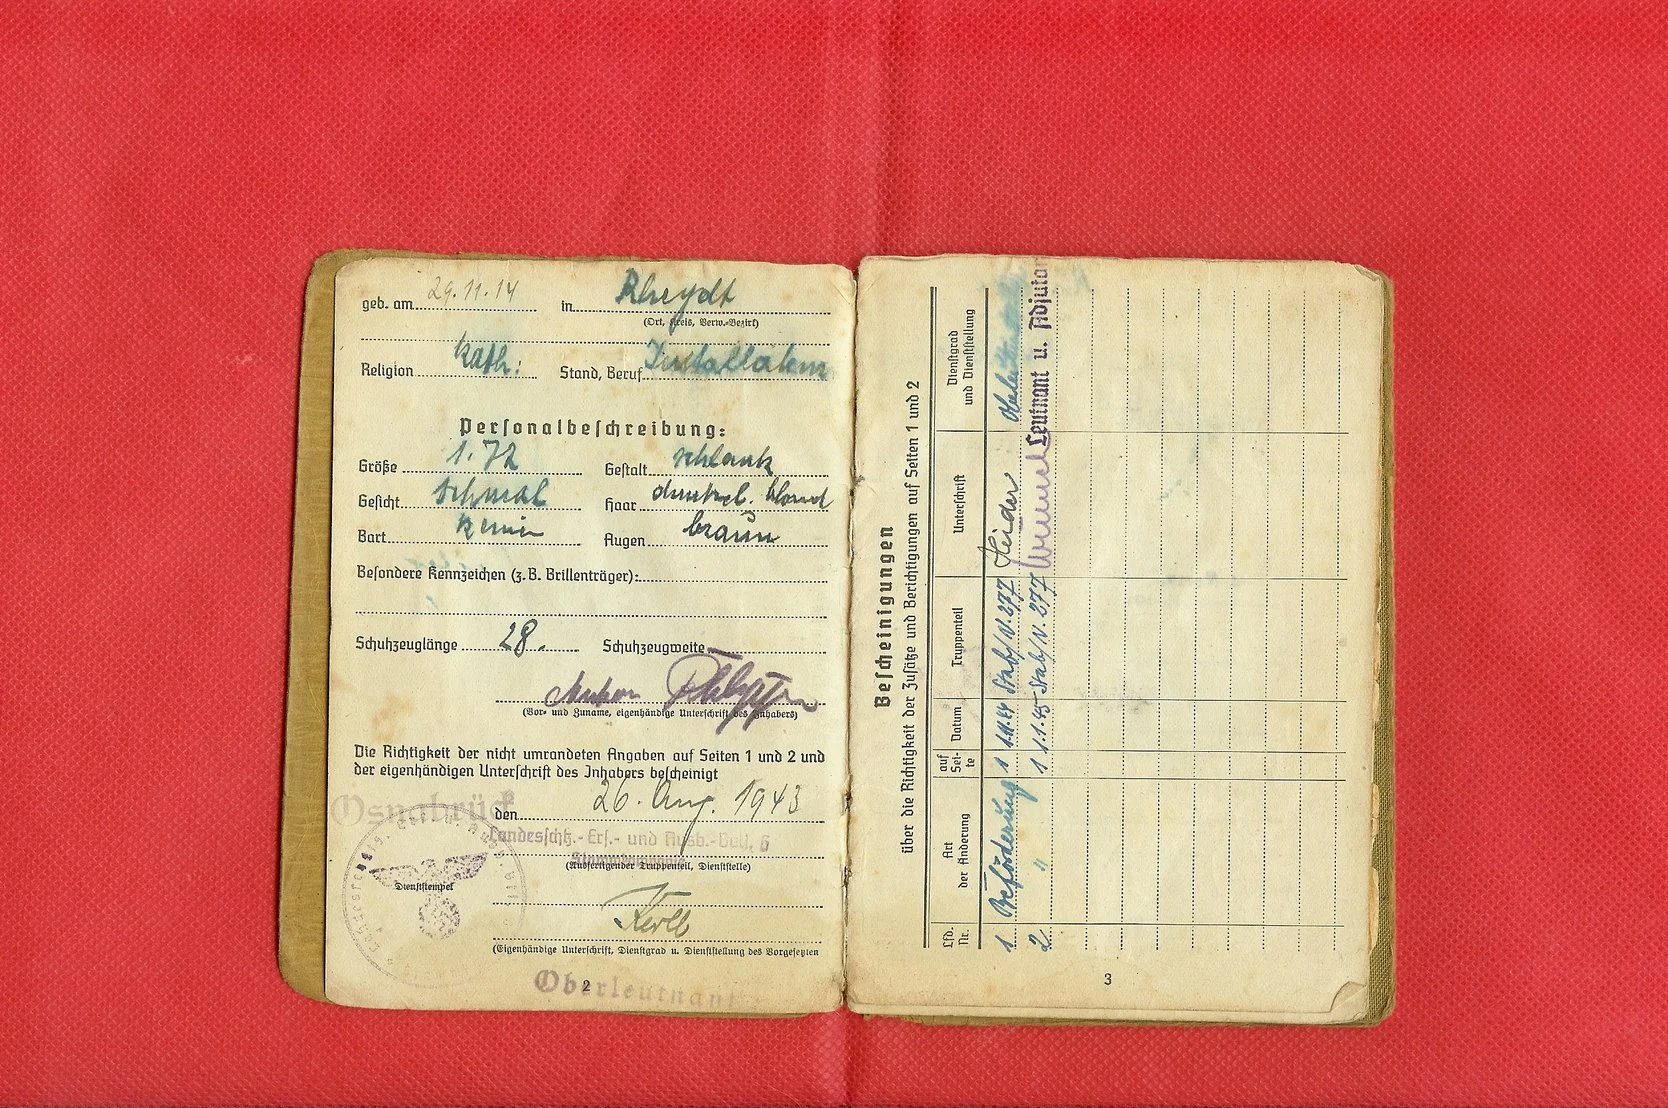 geb. am 29.11.14 in Rheydt
(Ort, Kreis, Verw.-Bezirk)
Religion kath: Stand, Beruf
Personalbeschreibung:
Größe 1.72 Gestalt schlank
Gesicht schmal Haar dunkel. blond
Bart kein Augen braun
Besondere Kennzeichen (z. B. Brillenträger):
Schuhzeuglänge 28. Schuhzeugweite
(Vor- und Zuname, eigenhändige Unterschrift des Inhabers)
Die Richtigkeit der nicht umrandeten Angaben auf Seiten 1 und 2 und
der eigenhändigen Unterschrift des Inhabers bescheinigt
Osnabrück
den 26. Aug. 1943
Landesschtz.-Ers.- und Ausb.-Batl. 6
(Ausfertigender Truppenteil, Dienststelle)
Dienststempel
(Eigenhändige Unterschrift, Dienstgrad u. Dienststellung des Vorgesetzten
Oberleutnant
2
Bescheinigungen
über die Richtigkeit der Zusätze und Berichtigungen auf Seiten 1 und 2
Lfd. Nr. Art der Änderung auf Seite Datum Truppenteil Unterschrift Dienstgrad und Dienststellung
1 Beförderung 1 Stab/N. 277
2 " 1 1.1.45 Stab/N. 277 Leutnant u. Adjutan
3